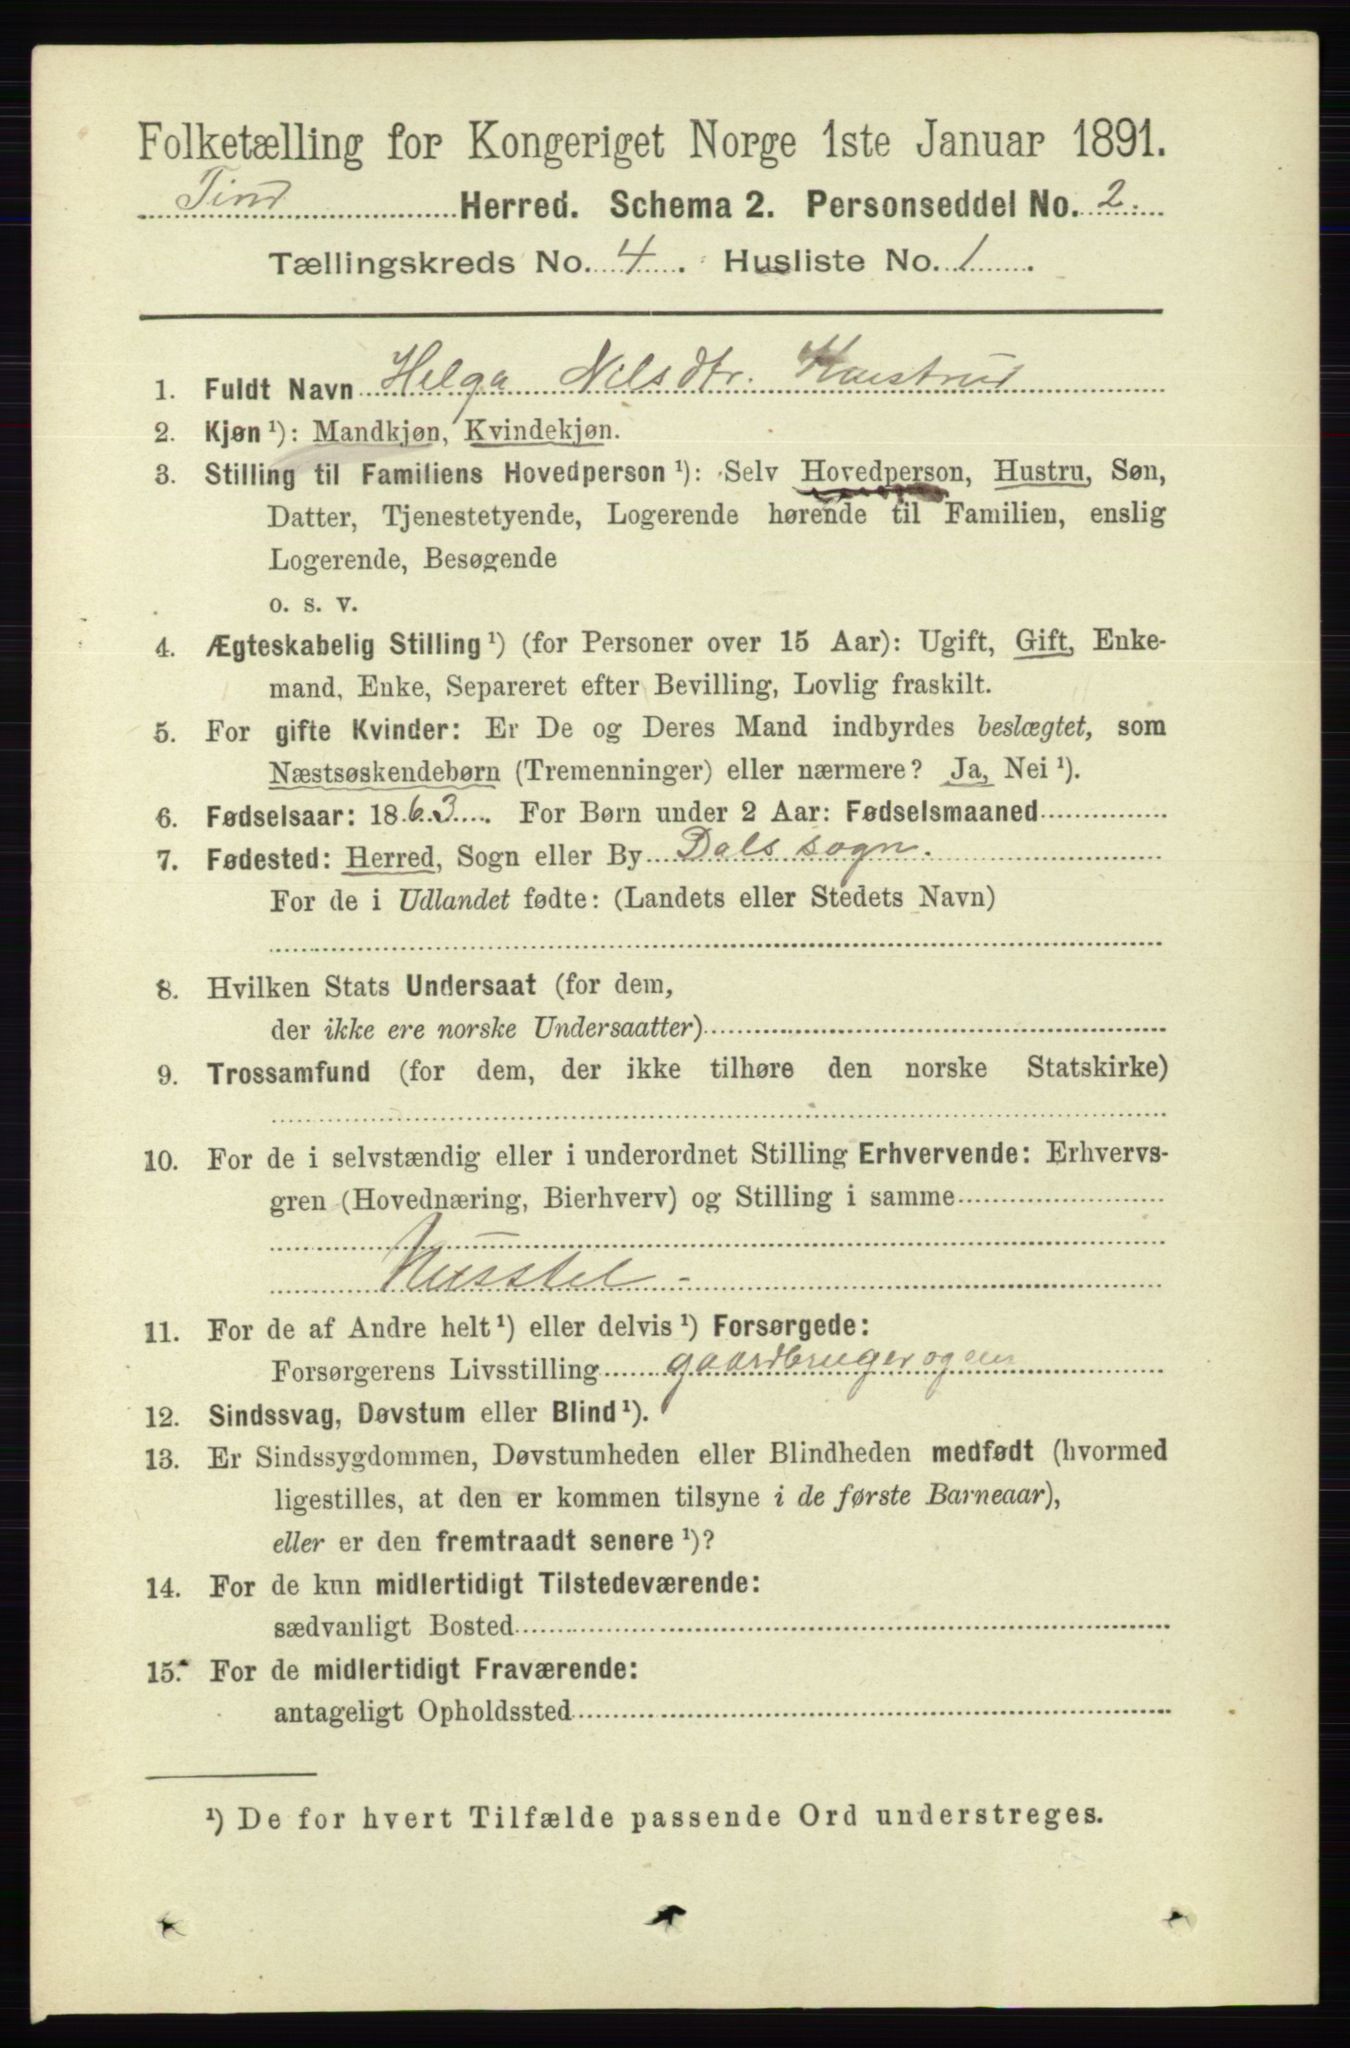 Folketælling for Kongeriget Norge 1ste Januar 1891.
Tind Herred. Schema 2. Personseddel No. 2.
Tællingskreds No. 4. Husliste No. 1.
1. Fuldt Navn Helga Nilsdtr.
2. Kjøn ¹): Mandkjøn, Kvindekjøn.
3. Stilling til Familiens Hovedperson ¹): Selv Hovedperson, Hustru, Søn,
Datter, Tjenestetyende, Logerende hørende til Familien, enslig
Logerende, Besøgende
o. s. v.
4. Ægteskabelig Stilling ¹) (for Personer over 15 Aar): Ugift, Gift, Enke-
mand, Enke, Separeret efter Bevilling, Lovlig fraskilt.
5. For gifte Kvinder: Er De og Deres Mand indbyrdes beslægtet, som
Næstsøskendebørn (Tremenninger) eller nærmere? Ja, Nei ¹).
6. Fødselsaar: 1863. For Børn under 2 Aar: Fødselsmaaned
7. Fødested: Herred, Sogn eller By Dals sogn.
For de i Udlandet fødte: (Landets eller Stedets Navn)
8. Hvilken Stats Undersaat (for dem,
der ikke ere norske Undersaatter)
9. Trossamfund (for dem, der ikke tilhøre den norske Statskirke)
10. For de i selvstændig eller i underordnet Stilling Erhvervende: Erhvervs-
gren (Hovednæring, Bierhverv) og Stilling i samme
Husstel -
11. For de af Andre helt ¹) eller delvis ¹) Forsørgede:
Forsørgerens Livsstilling gaardbruger og eier
12. Sindssvag, Døvstum eller Blind ¹).
13. Er Sindssygdommen, Døvstumheden eller Blindheden medfødt (hvormed
ligestilles, at den er kommen tilsyne i de første Barneaar),
eller er den fremtraadt senere ¹)?
14. For de kun midlertidigt Tilstedeværende:
sædvanligt Bosted
15. For de midlertidigt Fraværende:
antageligt Opholdssted
¹) De for hvert Tilfælde passende Ord understreges.